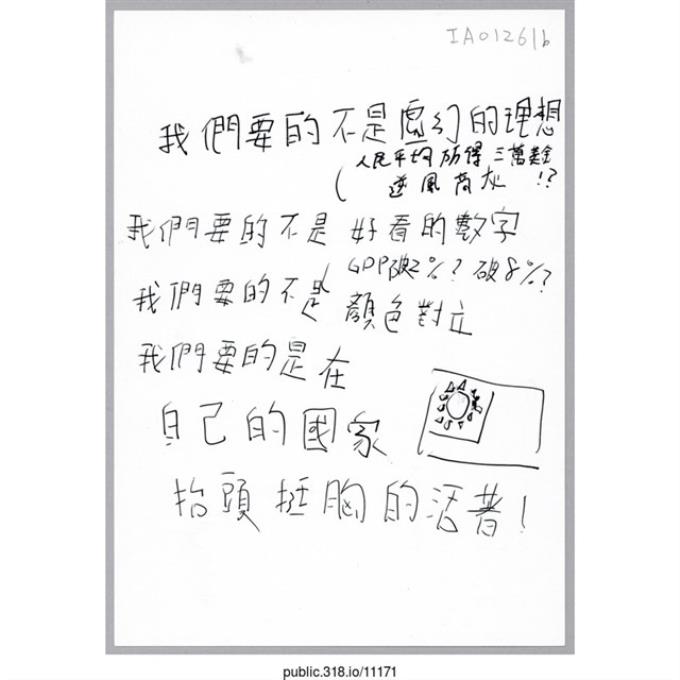 IA01261b
我們要的不是虛幻的理想
(人民平均所得 三萬美金
逆風高 !?
我們要的不是 好看的數字
(GDP破2%? 破8%?
我們要的不是 顏色對立
我們要的是在
自己的國家
抬頭挺胸的活著!
public.318.io/11171